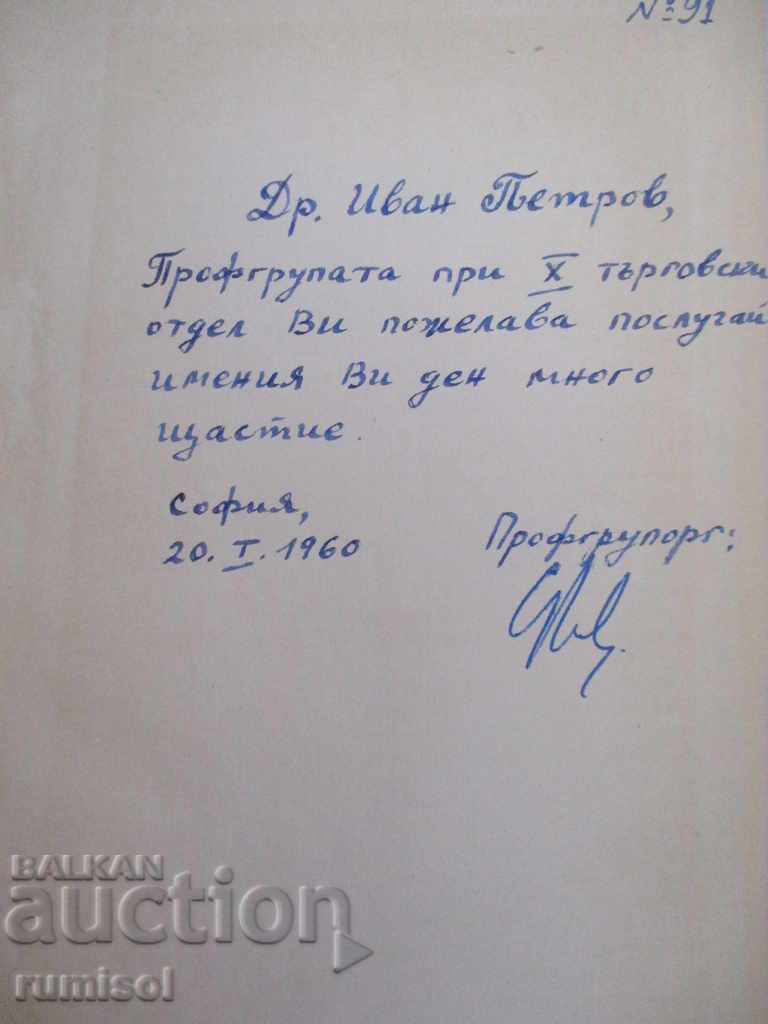 № 91
Др. Иван Петров,
Профгрупата при X търговски
отдел Ви пожелава послучай
имения Ви ден много
щастие.
София,
20. I. 1960
Профгрупорг:
BALKAN
auction
rumisol